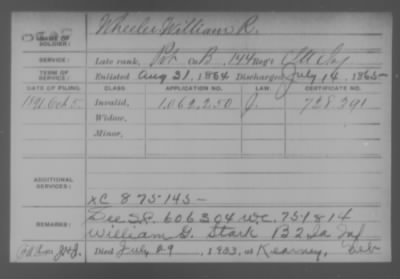 NAME OF SOLDIER: Wheeler William R.
SERVICE: Late rank, Pvt Co. B, 144 Reg't Ill Inf
TERM OF SERVICE: Enlisted Aug 31, 1864 Discharged July 14, 1865
DATE OF FILING. CLASS APPLICATION NO. LAW. CERTIFICATE NO.
1891 Oct 5 Invalid, 1.062.250 J. 728.391
Widow,
Minor,
ADDITIONAL SERVICES:
XC 875145 -
REMARKS: See S.O. 606304 W.C. 751814
William G. Stark B 2 Ia Inf
Died July 29, 1933, at Kearney, Neb